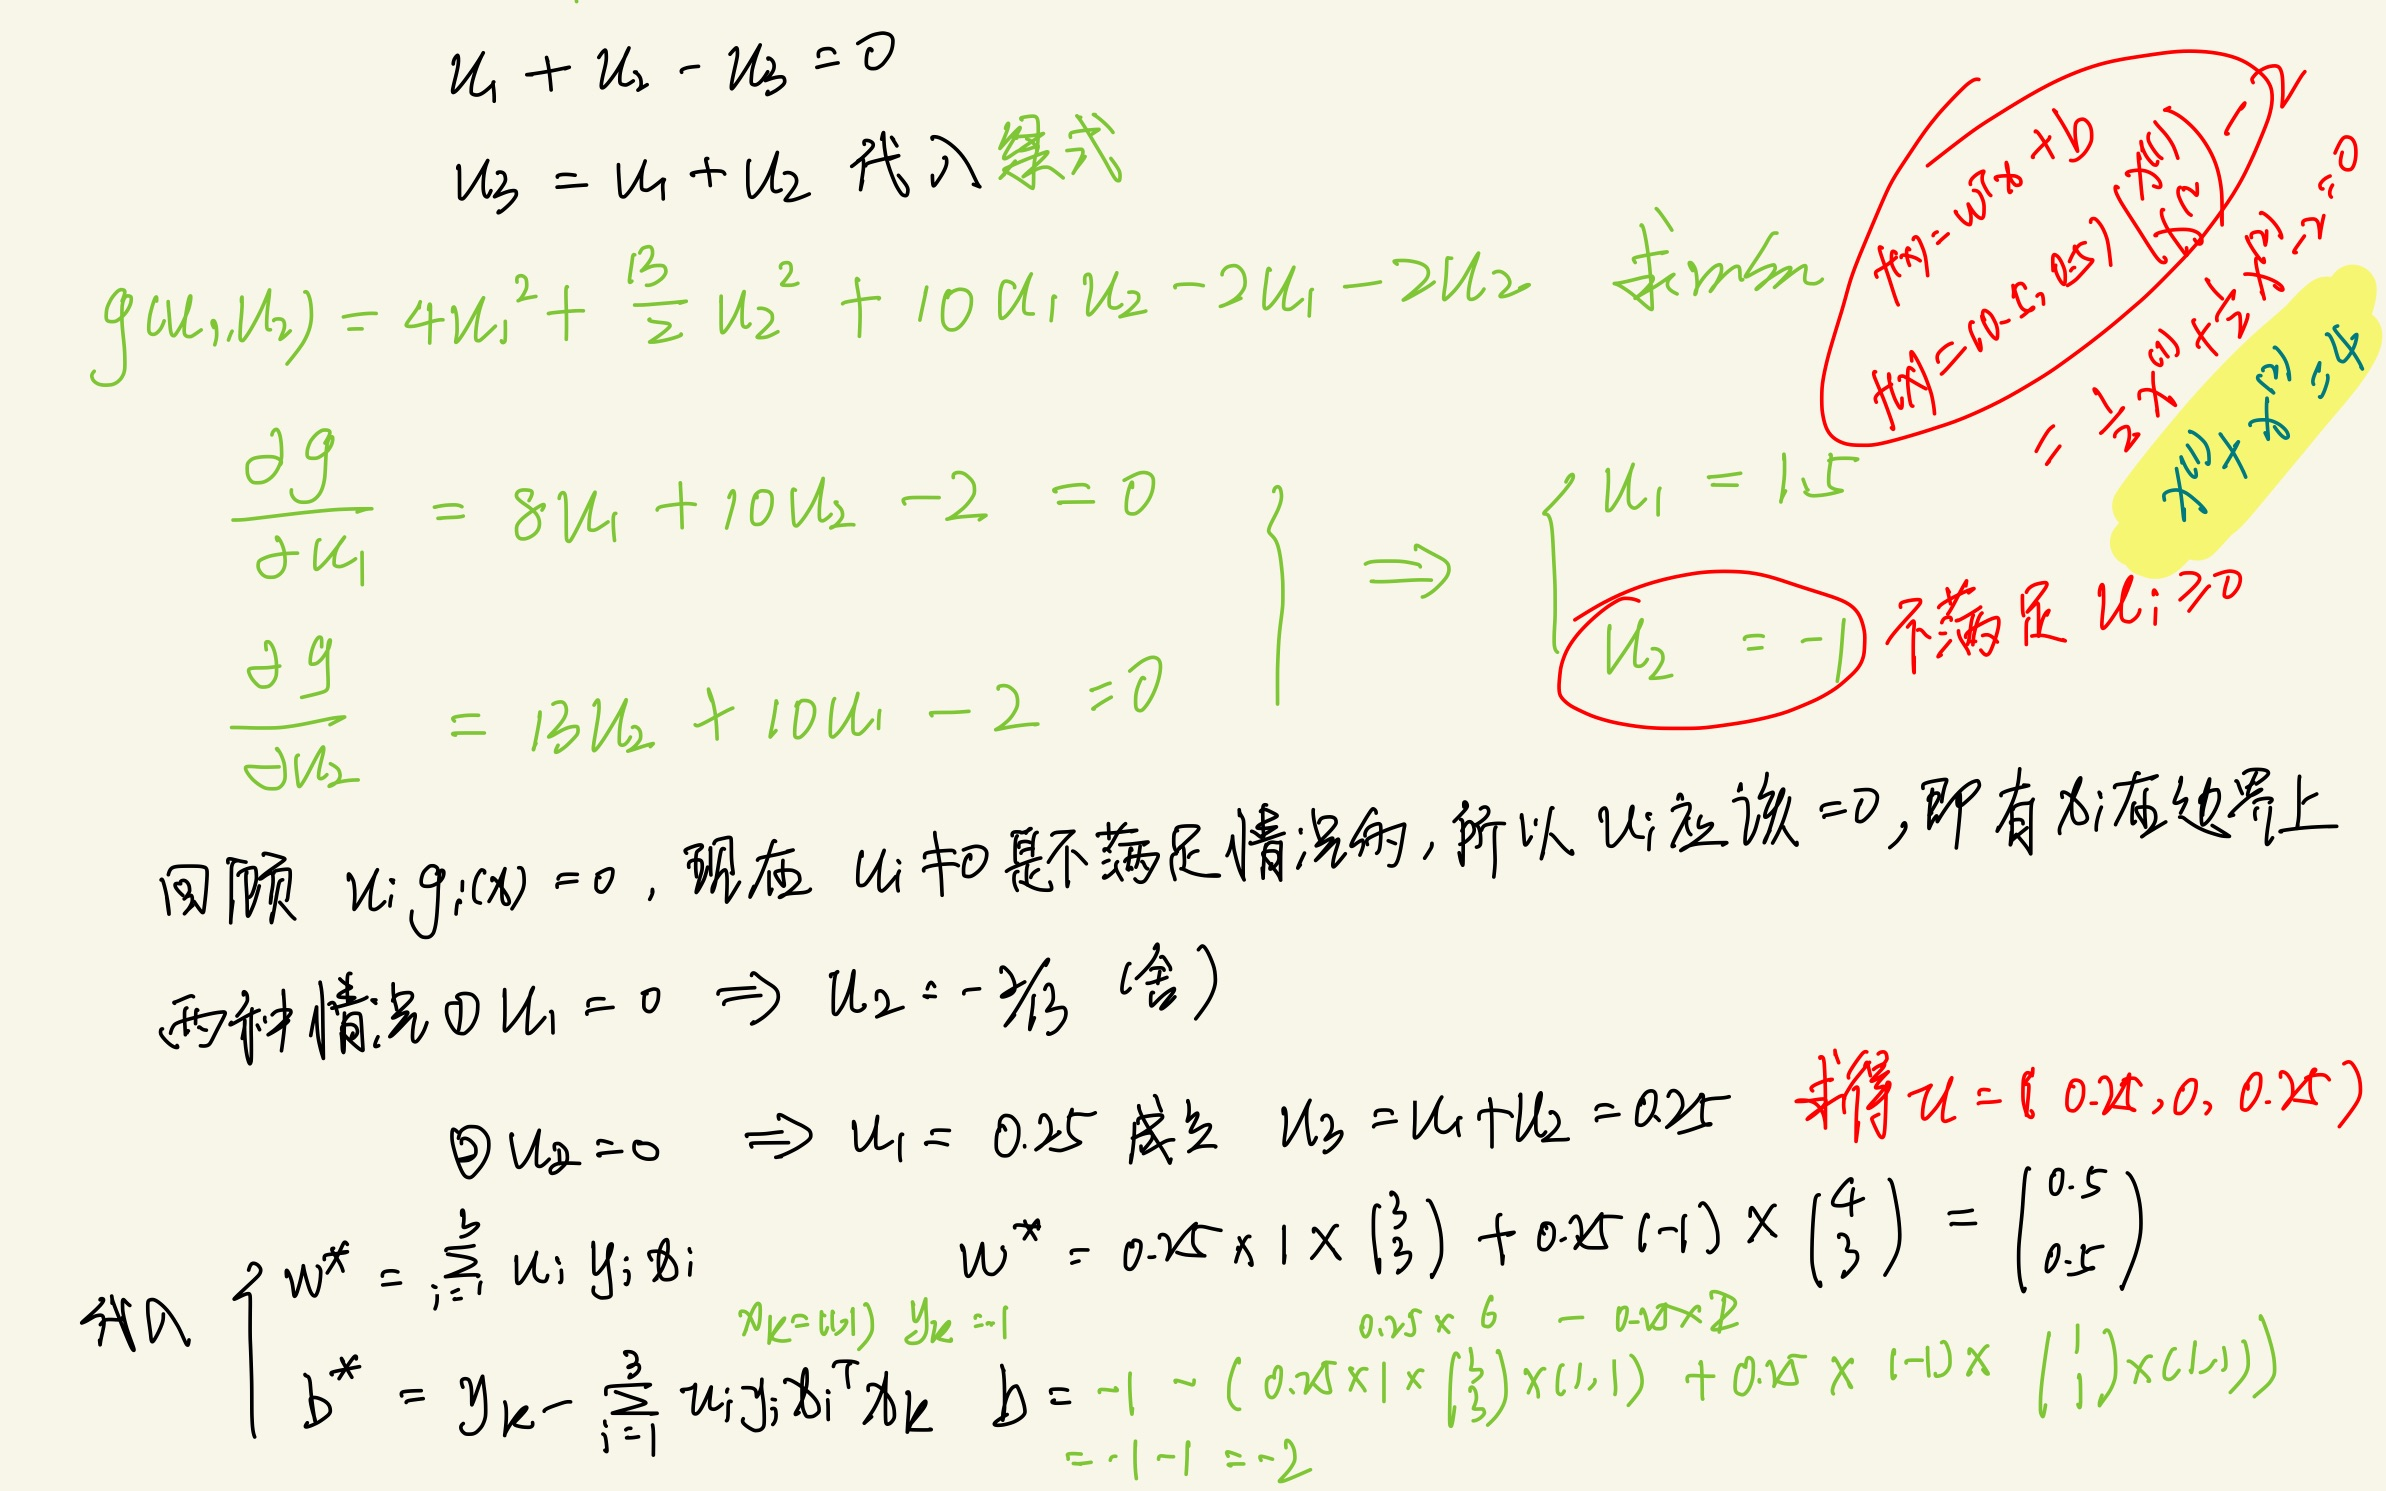 u₁ + u₂ - u₃ = 0
u₃ = u₁ + u₂ 代入 综式
g(u₁,u₂) = 4u₁² + 13/2 u₂² + 10u₁u₂ - 2u₁ - 2u₂ 求min
f(x) = wᵀx + b
f(x) = (0.5, 0.5) (x⁽¹⁾ x⁽²⁾) - 2
= 1/2 x⁽¹⁾ + 1/2 x⁽²⁾ - 2 = 0
x⁽¹⁾ + x⁽²⁾ = 4
∂g/∂u₁ = 8u₁ + 10u₂ - 2 = 0
∂g/∂u₂ = 13u₂ + 10u₁ - 2 = 0
} ⇒ { u₁ = 1.5
u₂ = -1 不满足 uᵢ ≥ 0
回顾 uᵢgᵢ(x) = 0, 现在 uᵢ≠0 是不满足情况的, 所以 uᵢ应该 = 0, 即有 xᵢ在边界上
两种情况 ① u₁ = 0 ⇒ u₂ = -2/13 (舍)
② u₂ = 0 ⇒ u₁ = 0.25 成立 u₃ = u₁ + u₂ = 0.25 求得 u = (0.25, 0, 0.25)
代入 { w* = ∑ᵢ₌₁³ uᵢ yᵢ xᵢ w* = 0.25 × 1 × (3 3) + 0.25 (-1) × (4 3) = (0.5 0.5)
xₖ = (1,1) yₖ = -1 0.25 × 6 - 0.25 × 2
b* = yₖ - ∑ᵢ₌₁³ uᵢyᵢxᵢᵀxₖ b = -1 - (0.25 × 1 × (3 3) × (1,1) + 0.25 × (-1) × (1 1) × (1,1))
= -1 - 1 = -2